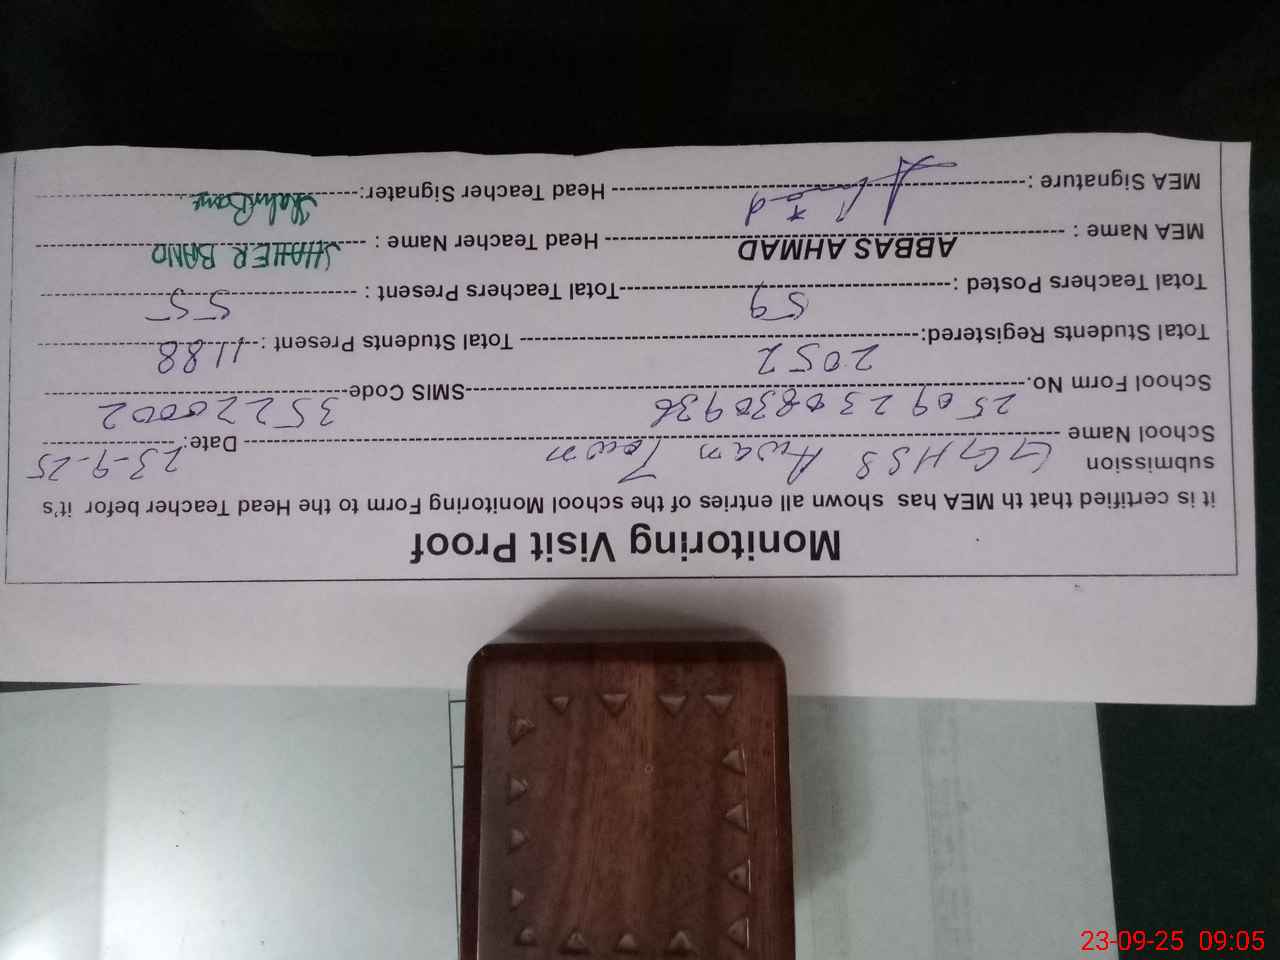 Monitoring Visit Proof
it is certified that th MEA has shown all entries of the school Monitoring Form to the Head Teacher befor it's
submission
School Name GGHSS Awan Town Date: 23-9-25
School Form No. 250923083093 SMIS Code 35220002
Total Students Registered: 2052 Total Students Present : 1188
Total Teachers Posted : 59 Total Teachers Present : 55
MEA Name : ABBAS AHMAD Head Teacher Name : SHAHER BANO
MEA Signature : Head Teacher Signater:
23-09-25 09:05